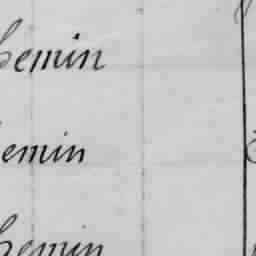 hemin
emin
hemin